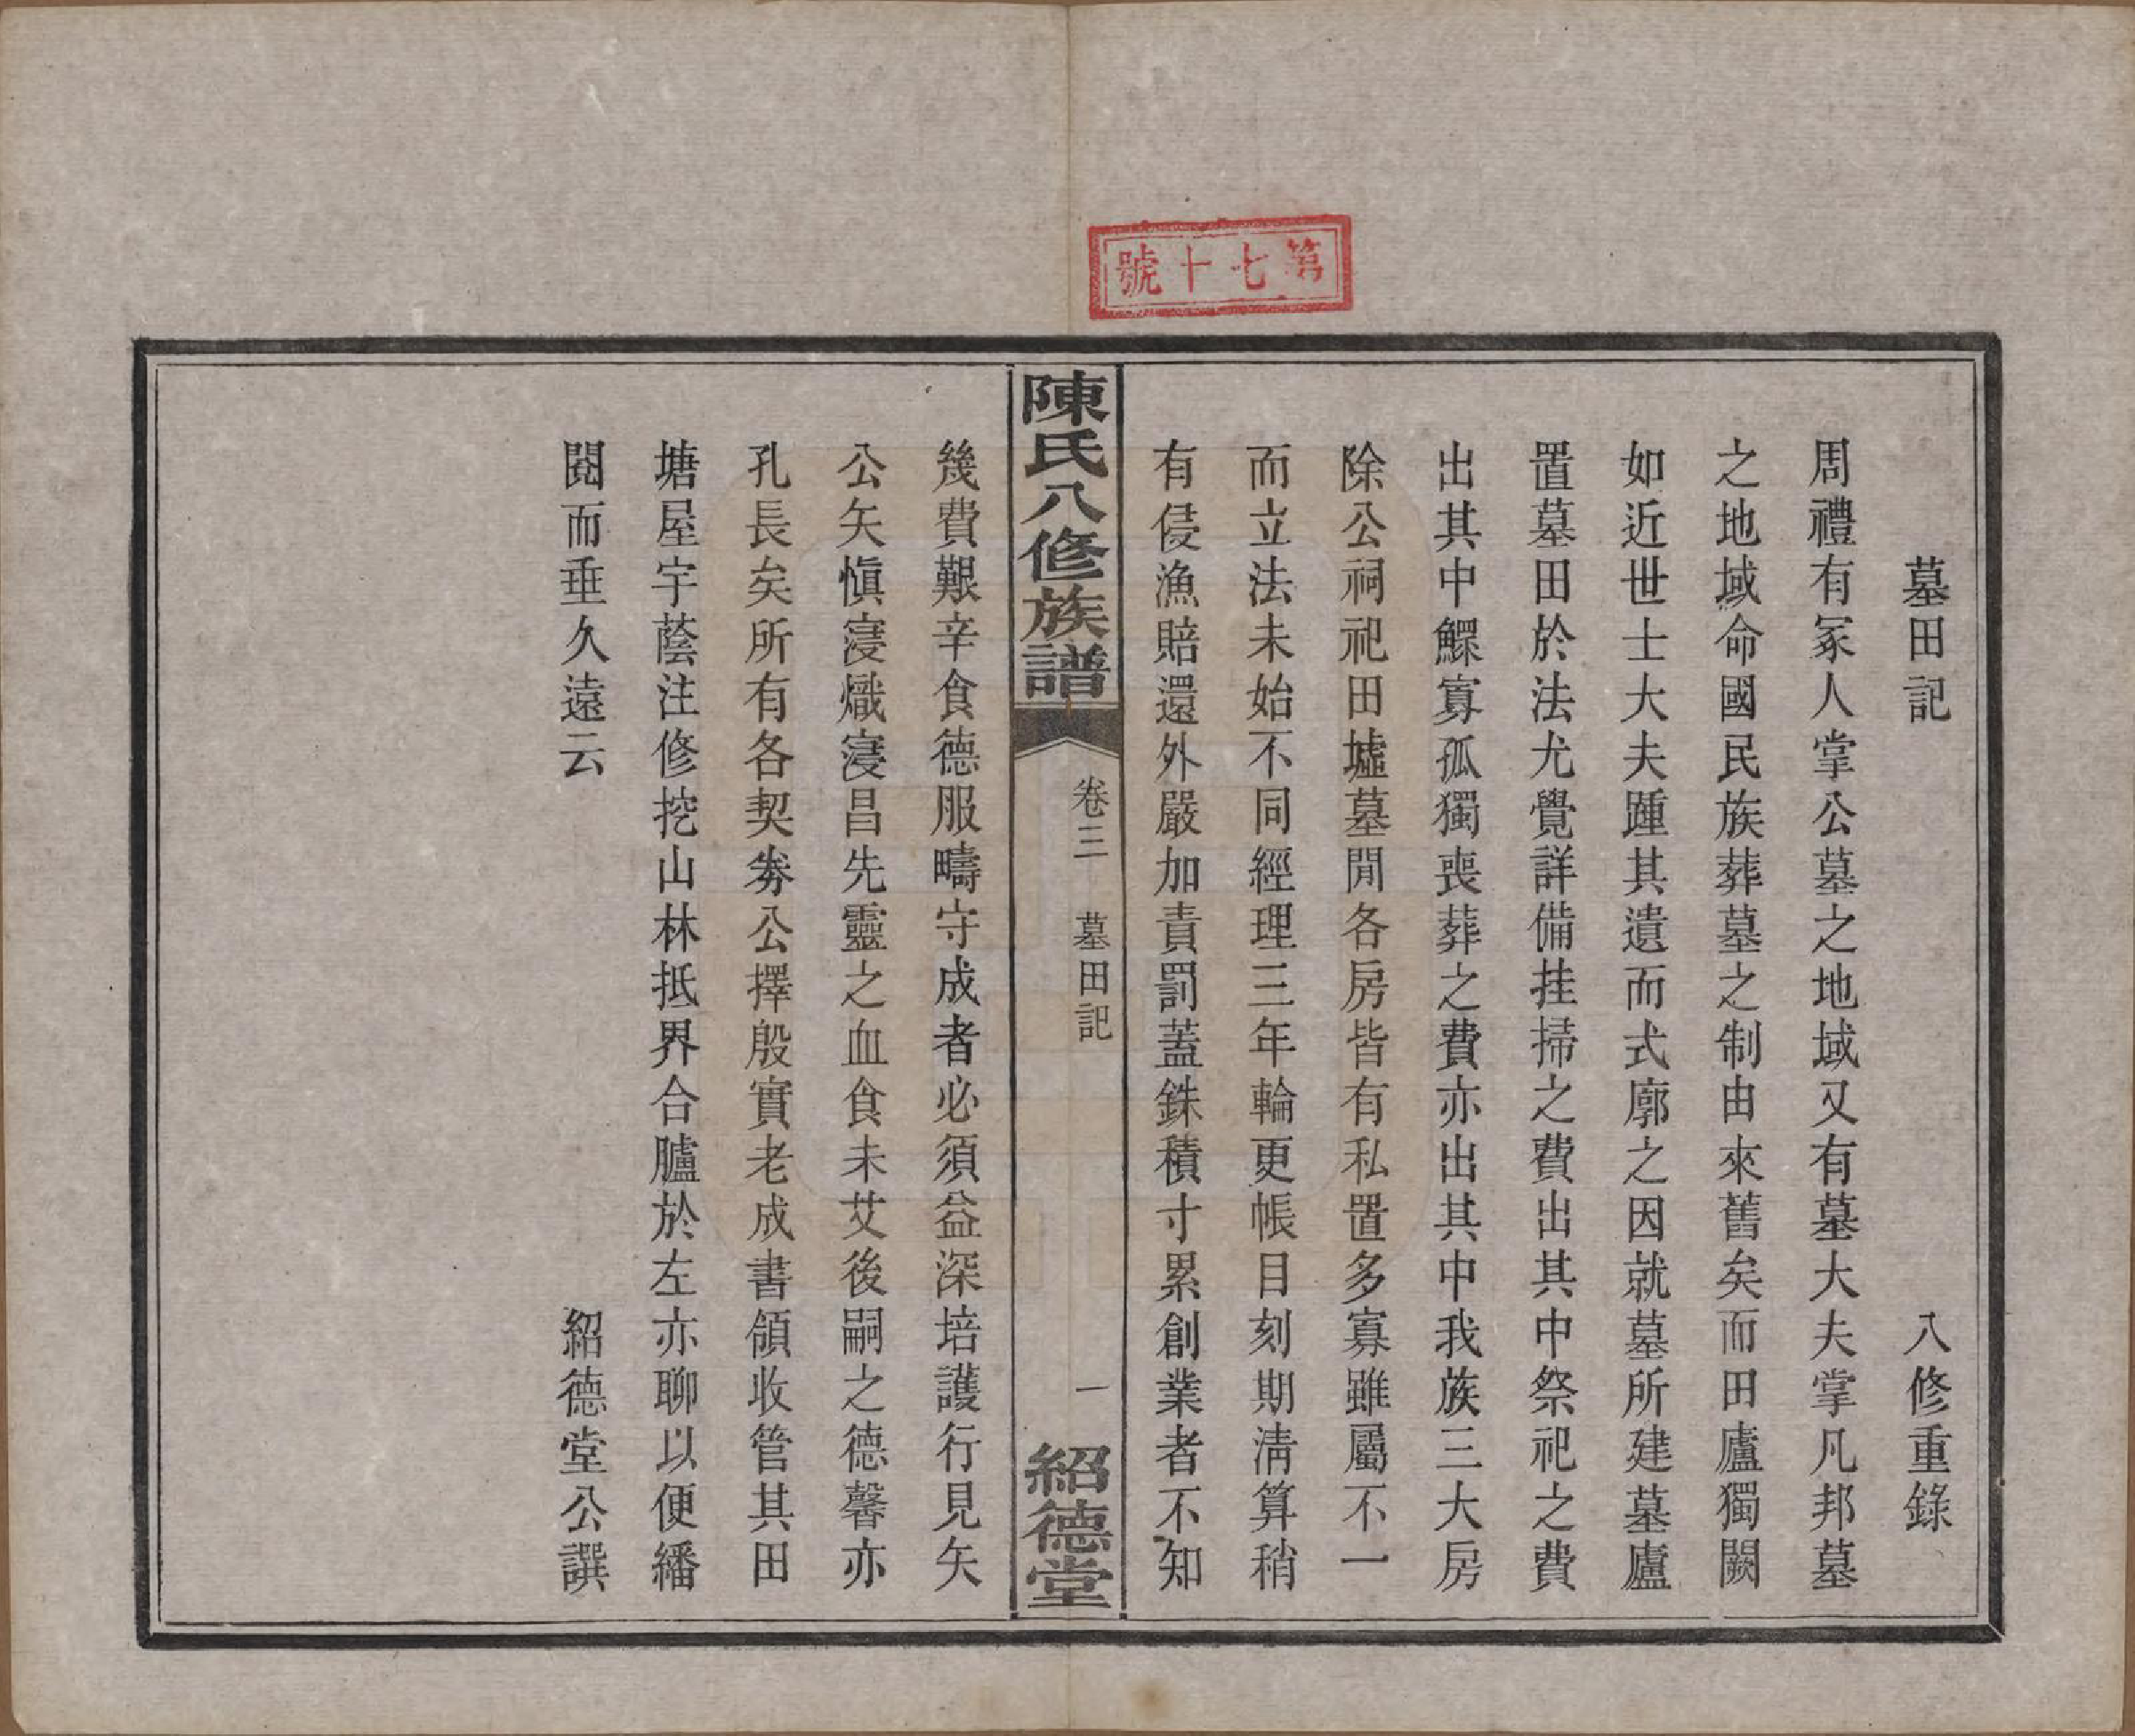 第七十號
墓田記　八修重錄
周禮有冢人掌公墓之地域又有墓大夫掌凡邦墓
之地域命國民族葬墓之制由來舊矣而田廬獨闕
如近世士大夫踵其遺而式廓之因就墓所建墓廬
置墓田於法尤覺詳備挂掃之費出其中祭祀之費
出其中鰥寡孤獨喪葬之費亦出其中我族三大房
除公祠祀田墟墓閒各房皆有私置多寡雖屬不一
而立法未始不同經理三年輪更帳目刻期淸算稍
有侵漁賠還外嚴加責罰蓋銖積寸累創業者不知
陳氏八修族譜　卷三　墓田記　一　紹德堂
幾費艱辛食德服疇守成者必須益深培護行見矢
公矢愼寖熾寖昌先靈之血食未艾後嗣之德馨亦
孔長矣所有各契劵公擇殷實老成書領收管其田
塘屋宇蔭注修挖山林抵界合臚於左亦聊以便繙
閱而垂久遠云
紹德堂公譔